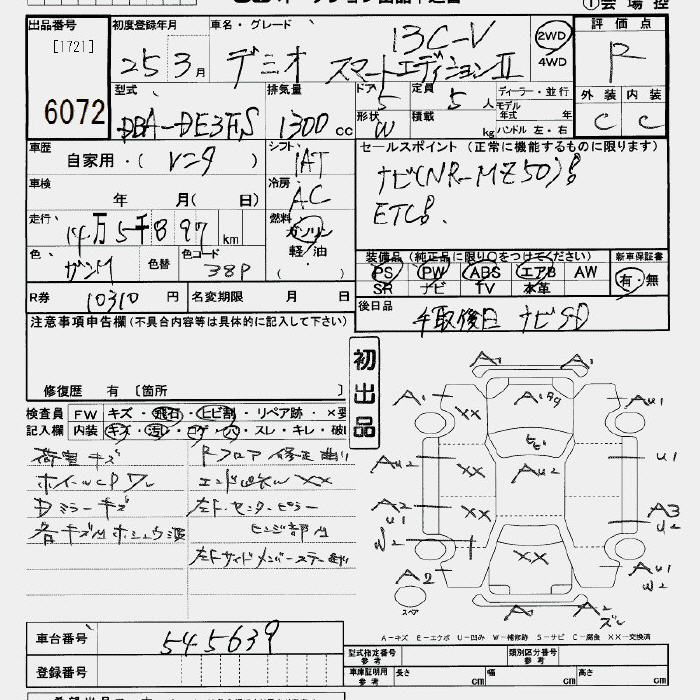 出品番号
[1721]
6072
初度登録年月
25 3月
車名・グレード
デミオ 13C-V
スマートエディションII
2WD
4WD
評価点
R
外装 内装
C C
型式
DBA-DE3FS
排気量
1300 cc
ドア
5
形状
W
定員
5 人
積載
kg
ディーラー・並行
モデル年式 年
ハンドル 左・右
車歴
自家用・( レンタ )
シフト
IAT
セールスポイント (正常に機能するものに限ります)
ナビ(NR-MZ50)!
ETC!
車検
年 月( 日)
冷房
AC
走行
14万5千897 km
燃料
ガソリン
軽/油
( )
色
ガンM
色替
色コード
38P
装備品 (純正品に限り○をつけてください)
PS PW ABS エアB AW
SR ナビ TV 本革
新車保証書
有・無
R券 10310 円
名変期限 月 日
後日品
手取後日 ナビSD
注意事項申告欄(不具合内容等は具体的に記入して下さい)
修復歴 有 〔箇所 〕
初出品
検査員 FW キズ・飛石・ヒビ割・リペア跡・×要
記入欄 内装 キズ・汚レ・コゲ・穴・スレ・キレ・破レ
荷室キズ
Rフロア修正曲り
ホイールCPワレ
エンドP××
Dミラーキズ
左F.センターピラー
各キズ凹ホシュウ有
ヒンジ部凹
左Fサイドメンバーステー曲り
A1 A1
A1 ×× A1 A U1
AU2 ×× AU2 U1
A2 U1 ×× A3 U2
W2 ×× AU1 W2
A2
A1 A2 ズレ
スペア
A-キズ E-エクボ U-凹み W-補修跡 S-サビ C-腐食 ××-交換済
車台番号 545639
登録番号
型式指定番号 参考
類別区分番号 参考
車庫証明用 参考 長さ cm 幅 cm 高さ cm